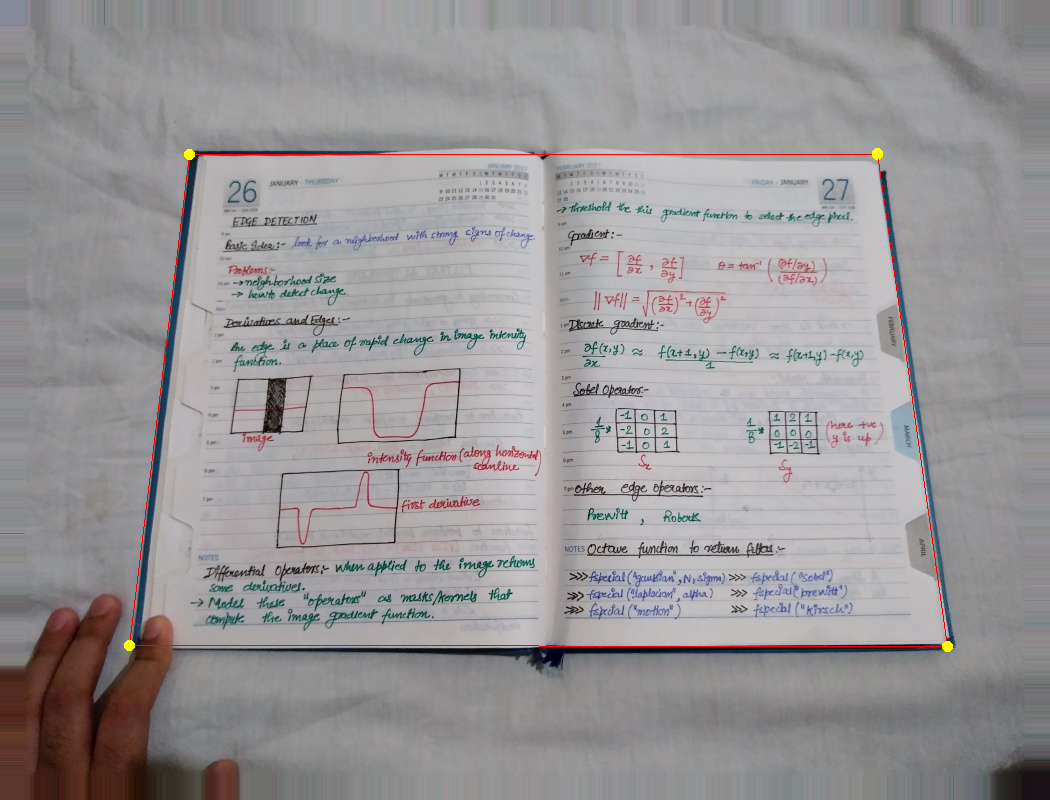 JANUARY 2017
26
JANUARY · THURSDAY
M T W T F S S M T W T F S S
EDGE DETECTION
Basic Idea:- look for a neighborhood with strong signs of change
Problems:-
→ neighborhood size
→ how to detect change
Derivatives and Edges:-
An edge is a place of rapid change in image intensity
function.
image
intensity function (along horizontal
scanline)
First derivative
NOTES
Differential Operators:- when applied to the image returns
some derivatives.
→ Model these "operators" as masks/kernels that
compute the image gradient function.
FEBRUARY 2017
FRIDAY · JANUARY
27
→ threshold the this gradient function to select the edge pixel.
Gradient:-
∇f = [ ∂f/∂x , ∂f/∂y ] θ = tan⁻¹ ( (∂f/∂y) / (∂f/∂x) )
|| ∇f || = √( (∂f/∂x)² + (∂f/∂y)² )
Discrete gradient:-
∂f(x,y)/∂x ≈ f(x+1, y) - f(x,y) / 1 ≈ f(x+1,y) - f(x,y)
Sobel Operator:-
1/8 *
-1 0 1
-2 0 2
-1 0 1
Sx
1/8 *
1 2 1
0 0 0
-1 -2 -1
Sy
(here +ve
y is up)
Other edge operators:-
Prewitt , Roberts
NOTES Octave function to return filters:-
>>> fspecial ("gaussian", N, sigma) >>> fspecial ("sobel")
>>> fspecial ("laplacian", alpha) >>> fspecial ("prewitt")
>>> fspecial ("motion") >>> fspecial ("kirsch")
FEBRUARY
MARCH
APRIL